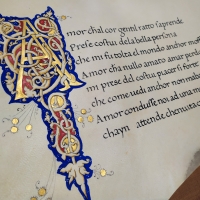 Amor chal cor gentil ratto saprende
Prese costui dela bella persona
che mi fu tolta el mondo anchor
Amor cha nullo amato amar
mi prese del costui piacer si forte
che come vedi anchor non
Amor condusse noi ad una
chayn attende chenvita